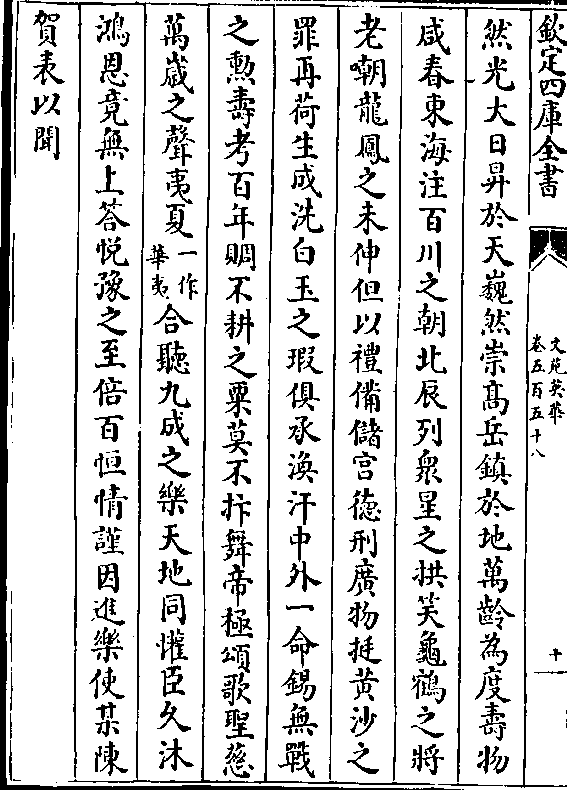 欽定四庫全書
文苑英華
卷五百五十八
十
然光大日昇於天巍然崇髙岳鎮於地萬齡為度壽物
咸春東海注百川之朝北辰列衆星之拱笑龜鶴之將
老嘲龍鳳之未伸但以禮備儲宫徳刑廣物挺黄沙之
罪再荷生成洗白玉之瑕俱承渙汗中外一命錫無戰
之勲壽考百年賜不耕之粟莫不抃舞帝極頌歌聖慈
萬嵗之聲夷夏一作華夷合聽九成之樂天地同懽臣久沐
鴻恩竟無上答悦豫之至倍百恒情謹因進樂使某陳
賀表以聞